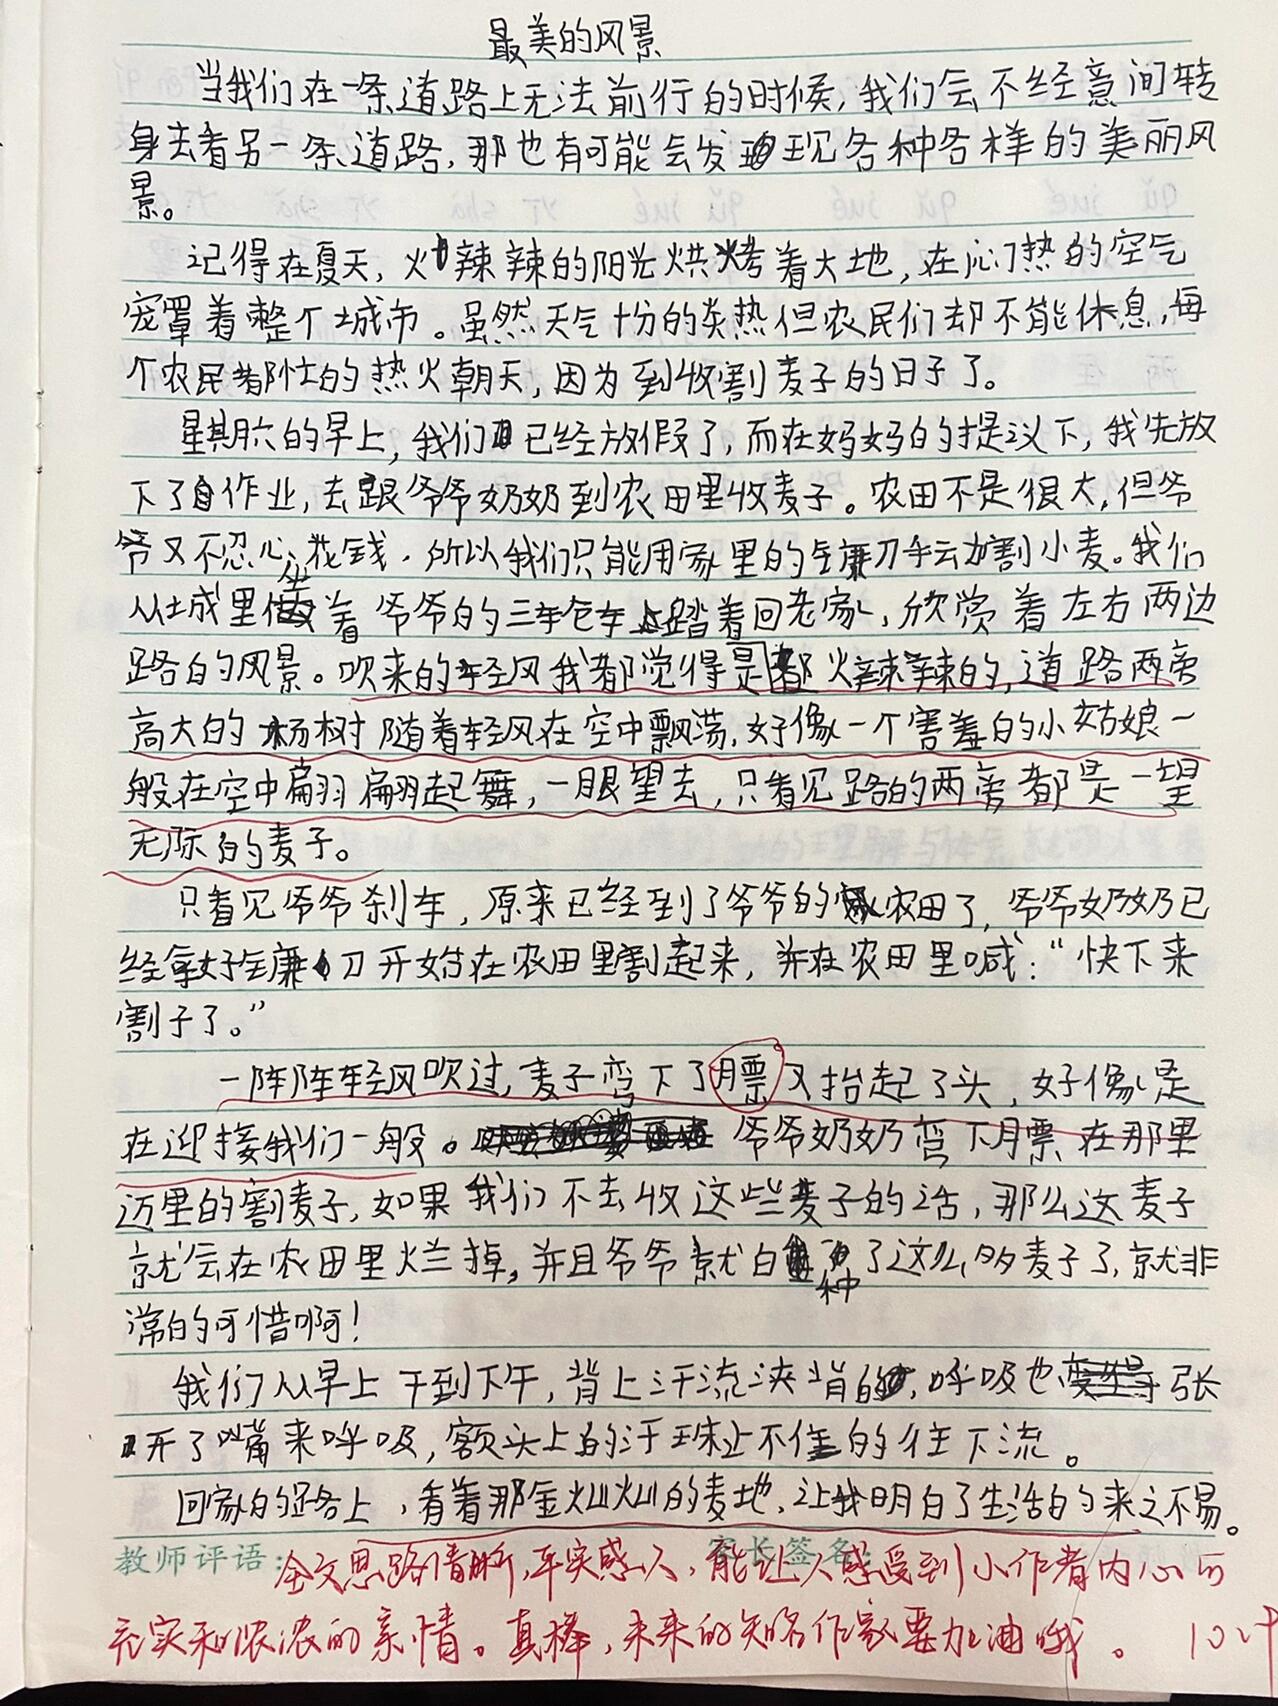 最美的风景
当我们在一条道路上无法前行的时候,我们会不经意间转
身去看另一条道路,那也有可能会发现各种各样的美丽风
景。
记得在夏天,火辣辣的阳光烘烤着大地,在闷热的空气
笼罩着整个城市。虽然天气十分的炎热但农民们却不能休息,每
个农民都忙的热火朝天,因为到收割麦子的日子了。
星期六的早上,我们已经放假了,而在妈妈的提议下,我先放
下了作业,去跟爷爷奶奶到农田里收麦子。农田不是很大,但爷
爷又不忍心花钱,所以我们只能用家里的镰刀手动割小麦。我们
从城里坐着爷爷的三车仑车踏着回老家,欣赏着左右两边
路的风景。吹来的轻风我都觉得是火辣辣的,道路两旁
高大的杨树随着轻风在空中飘荡,好像一个害羞的小姑娘一
般在空中翩翩起舞,一眼望去,只看见路的两旁都是一望
无际的麦子。
只看见爷爷刹车,原来已经到了爷爷的农田了,爷爷奶奶已
经拿好镰刀开始在农田里割起来,并在农田里喊:“快下来
割子了。”
一阵阵轻风吹过,麦子弯下了膘又抬起了头,好像是
在迎接我们一般。爷爷奶奶弯下膘在那里
迈里的割麦子,如果我们不去收这些麦子的话,那么这麦子
就会在农田里烂掉,并且爷爷就白种了这么多麦子了,就非
常的可惜啊!
我们从早上干到下午,背上汗流浃背的,呼吸也张
开了嘴来呼吸,额头上的汗珠止不住的往下流。
回家的路上,看着那金灿灿的麦地,让我明白了生活的来之不易。
教师评语: 家长签名:
全文思路清晰,平实感人,能让人感受到小作者内心的
充实和浓浓的亲情。真棒,未来的知名作家要加油哦。 10.24